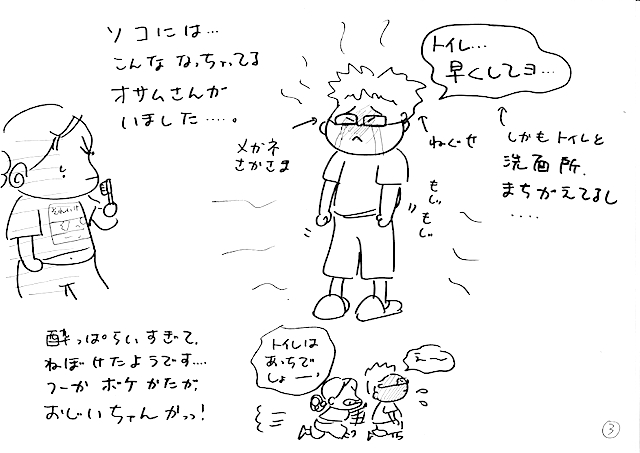 ソコには…
こんな なっちゃってる
オサムさんが
いました‥‥。
トイレ…
早くしてヨ…
メガネ
さかさま
ねぐせ
しかもトイレと
洗面所、
まちがえてるし
‥‥
もじ
もじ
酔っぱらいすぎて、
ねぼけたようです‥‥
つーか ボケかたが、
おじいちゃんかっ!
トイレは
あっちで
しょー、
えー
3